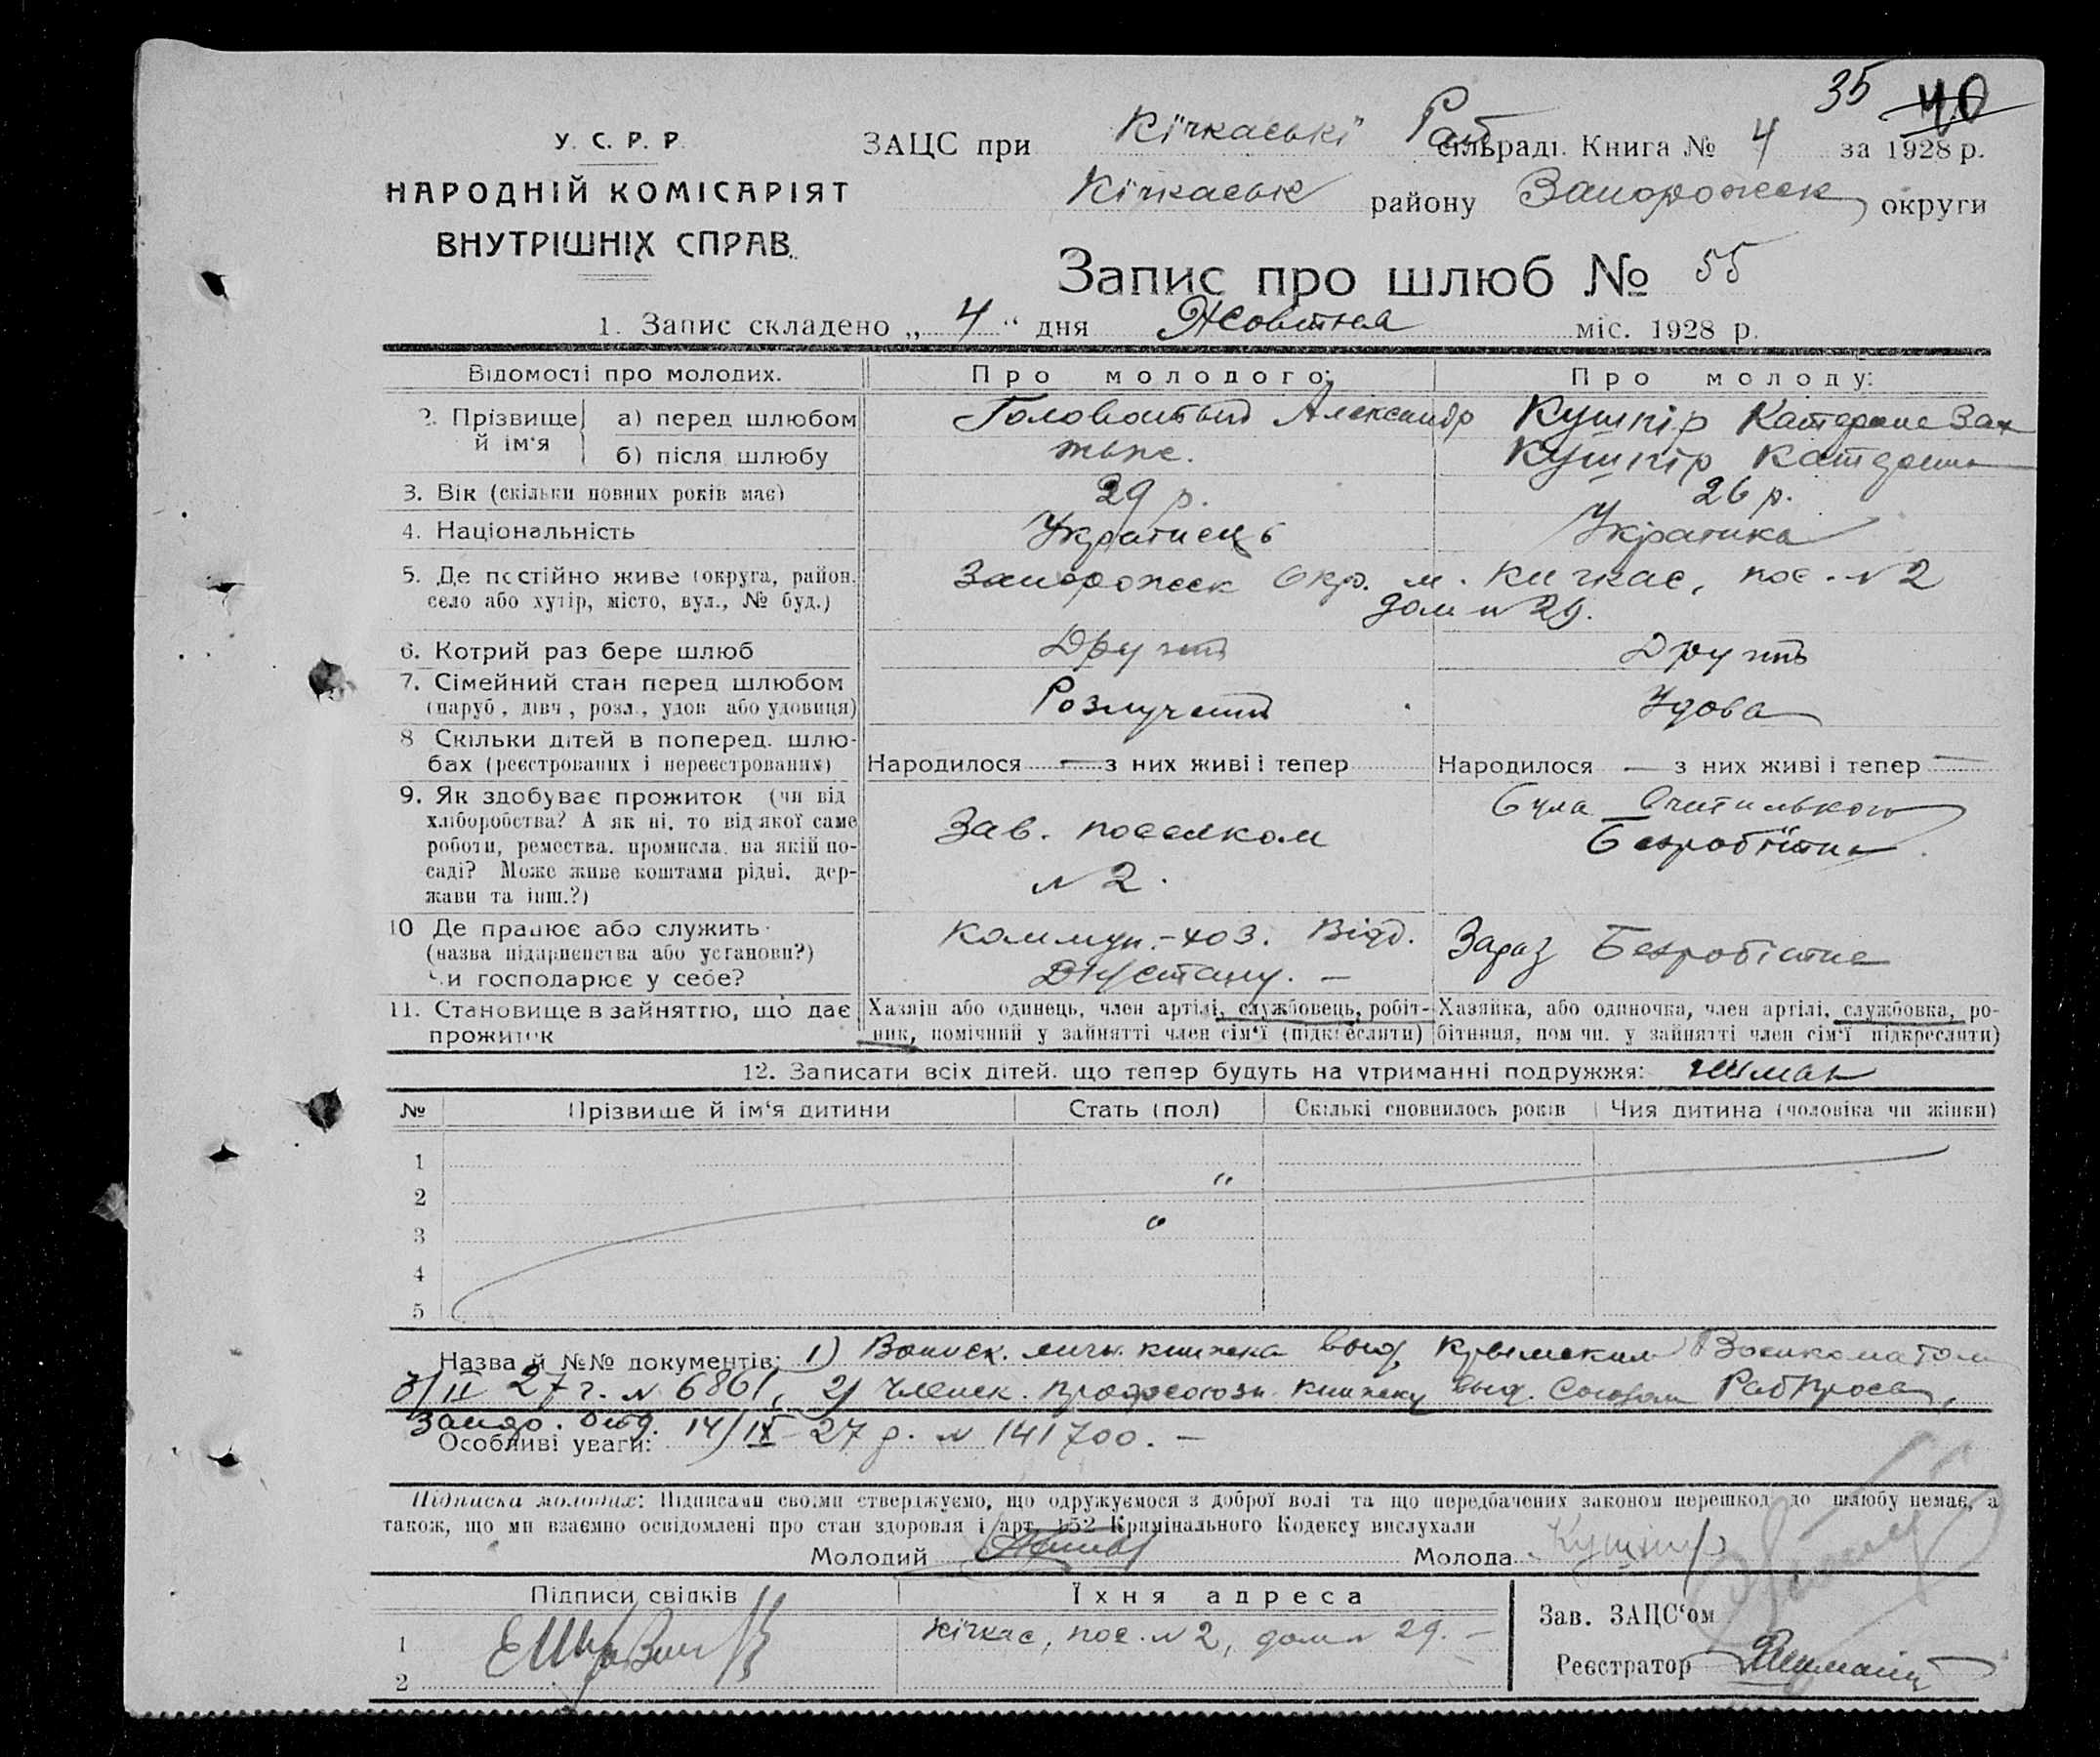 35 40
У. С. Р. Р.
НАРОДНІЙ КОМІСАРІЯТ
ВНУТРІШНІХ СПРАВ.
ЗАЦС при Кічкаські Рай сільраді. Книга № 4 за 1928 р.
Кічкаськ району Запорожск округи
Запис про шлюб № 55
1. Запис складено „ 4 “ дня Жовтня міс. 1928 р.
Відомості про молодих. Про молодого: Про молоду:
2. Прізвище й ім‘я а) перед шлюбом Головатий Александр Кушнір Катерина Зах
б) після шлюбу Кушнір Катерина
3. Вік (скільки повних років має) 29 р. 26 р.
4. Національність Українець Українка
5. Де постійно живе (округа, район, Запорожск Окр. м. Кичкас, пос. №2
село або хутір, місто, вул., № буд.) дом №29.
6. Котрий раз бере шлюб Другий Другий
7. Сімейний стан перед шлюбом Розлучений Удова
(паруб., дівч., розл., удов. або удовиця)
8 Скільки дітей в поперед. шлю-
бах (реєстрованих і нереєстрованих) Народилося — з них живі і тепер Народилося — з них живі і тепер —
9. Як здобуває прожиток (чи від Була
хліборобства? А як ні, то від якої саме Зав. поселком Безробітна
роботи, ремества, промисла, на якій по-
саді? Може живе коштами рідні, дер- №2.
жави та інш.?)
10 Де працює або служить Коммун.-хоз. Відд. Зараз Безробітна
(назва підприємства або установи?)
Чи господарює у себе?
11. Становище в зайняттю, що дає Хазяїн або одинець, член артілі, службовець, робіт- Хазяйка, або одиночка, член артілі, службовка, ро-
прожиток ник, помічний у зайнятті член сім‘ї (підкреслити) бітниця, помічн. у зайнятті член сім‘ї підкреслити)
12. Записати всіх дітей, що тепер будуть на утриманні подружжя:
№ Прізвище й ім‘я дитини Стать (пол) Скількі сповнилось років Чия дитина (чоловіка чи жінки)
1
2 "
3 "
4
5
Назва й №№ документів: 1) Воинск. личн. книжка выд. Крымским Военкоматом
27 г. № 6861, 2) Членск. профсоюзн. книжку выд. Союзом РабПроса,
Отд. 14/IX-27 р. № 141700. —
Особливі уваги:
Підписка молодих: Підписами своїми стверджуємо, що одружуємося з доброї волі та що передбачених законом перешкод до шлюбу немає, а
також, що ми взаємно освідомлені про стан здоровля і арт. 152 Кримінального Кодексу вислухали
Молодий Молода Кушнір
Підписи свідків Їхня адреса
Зав. ЗАЦС‘ом
1 Кічкас, пос. №2, дом № 29. —
Реєстратор
2